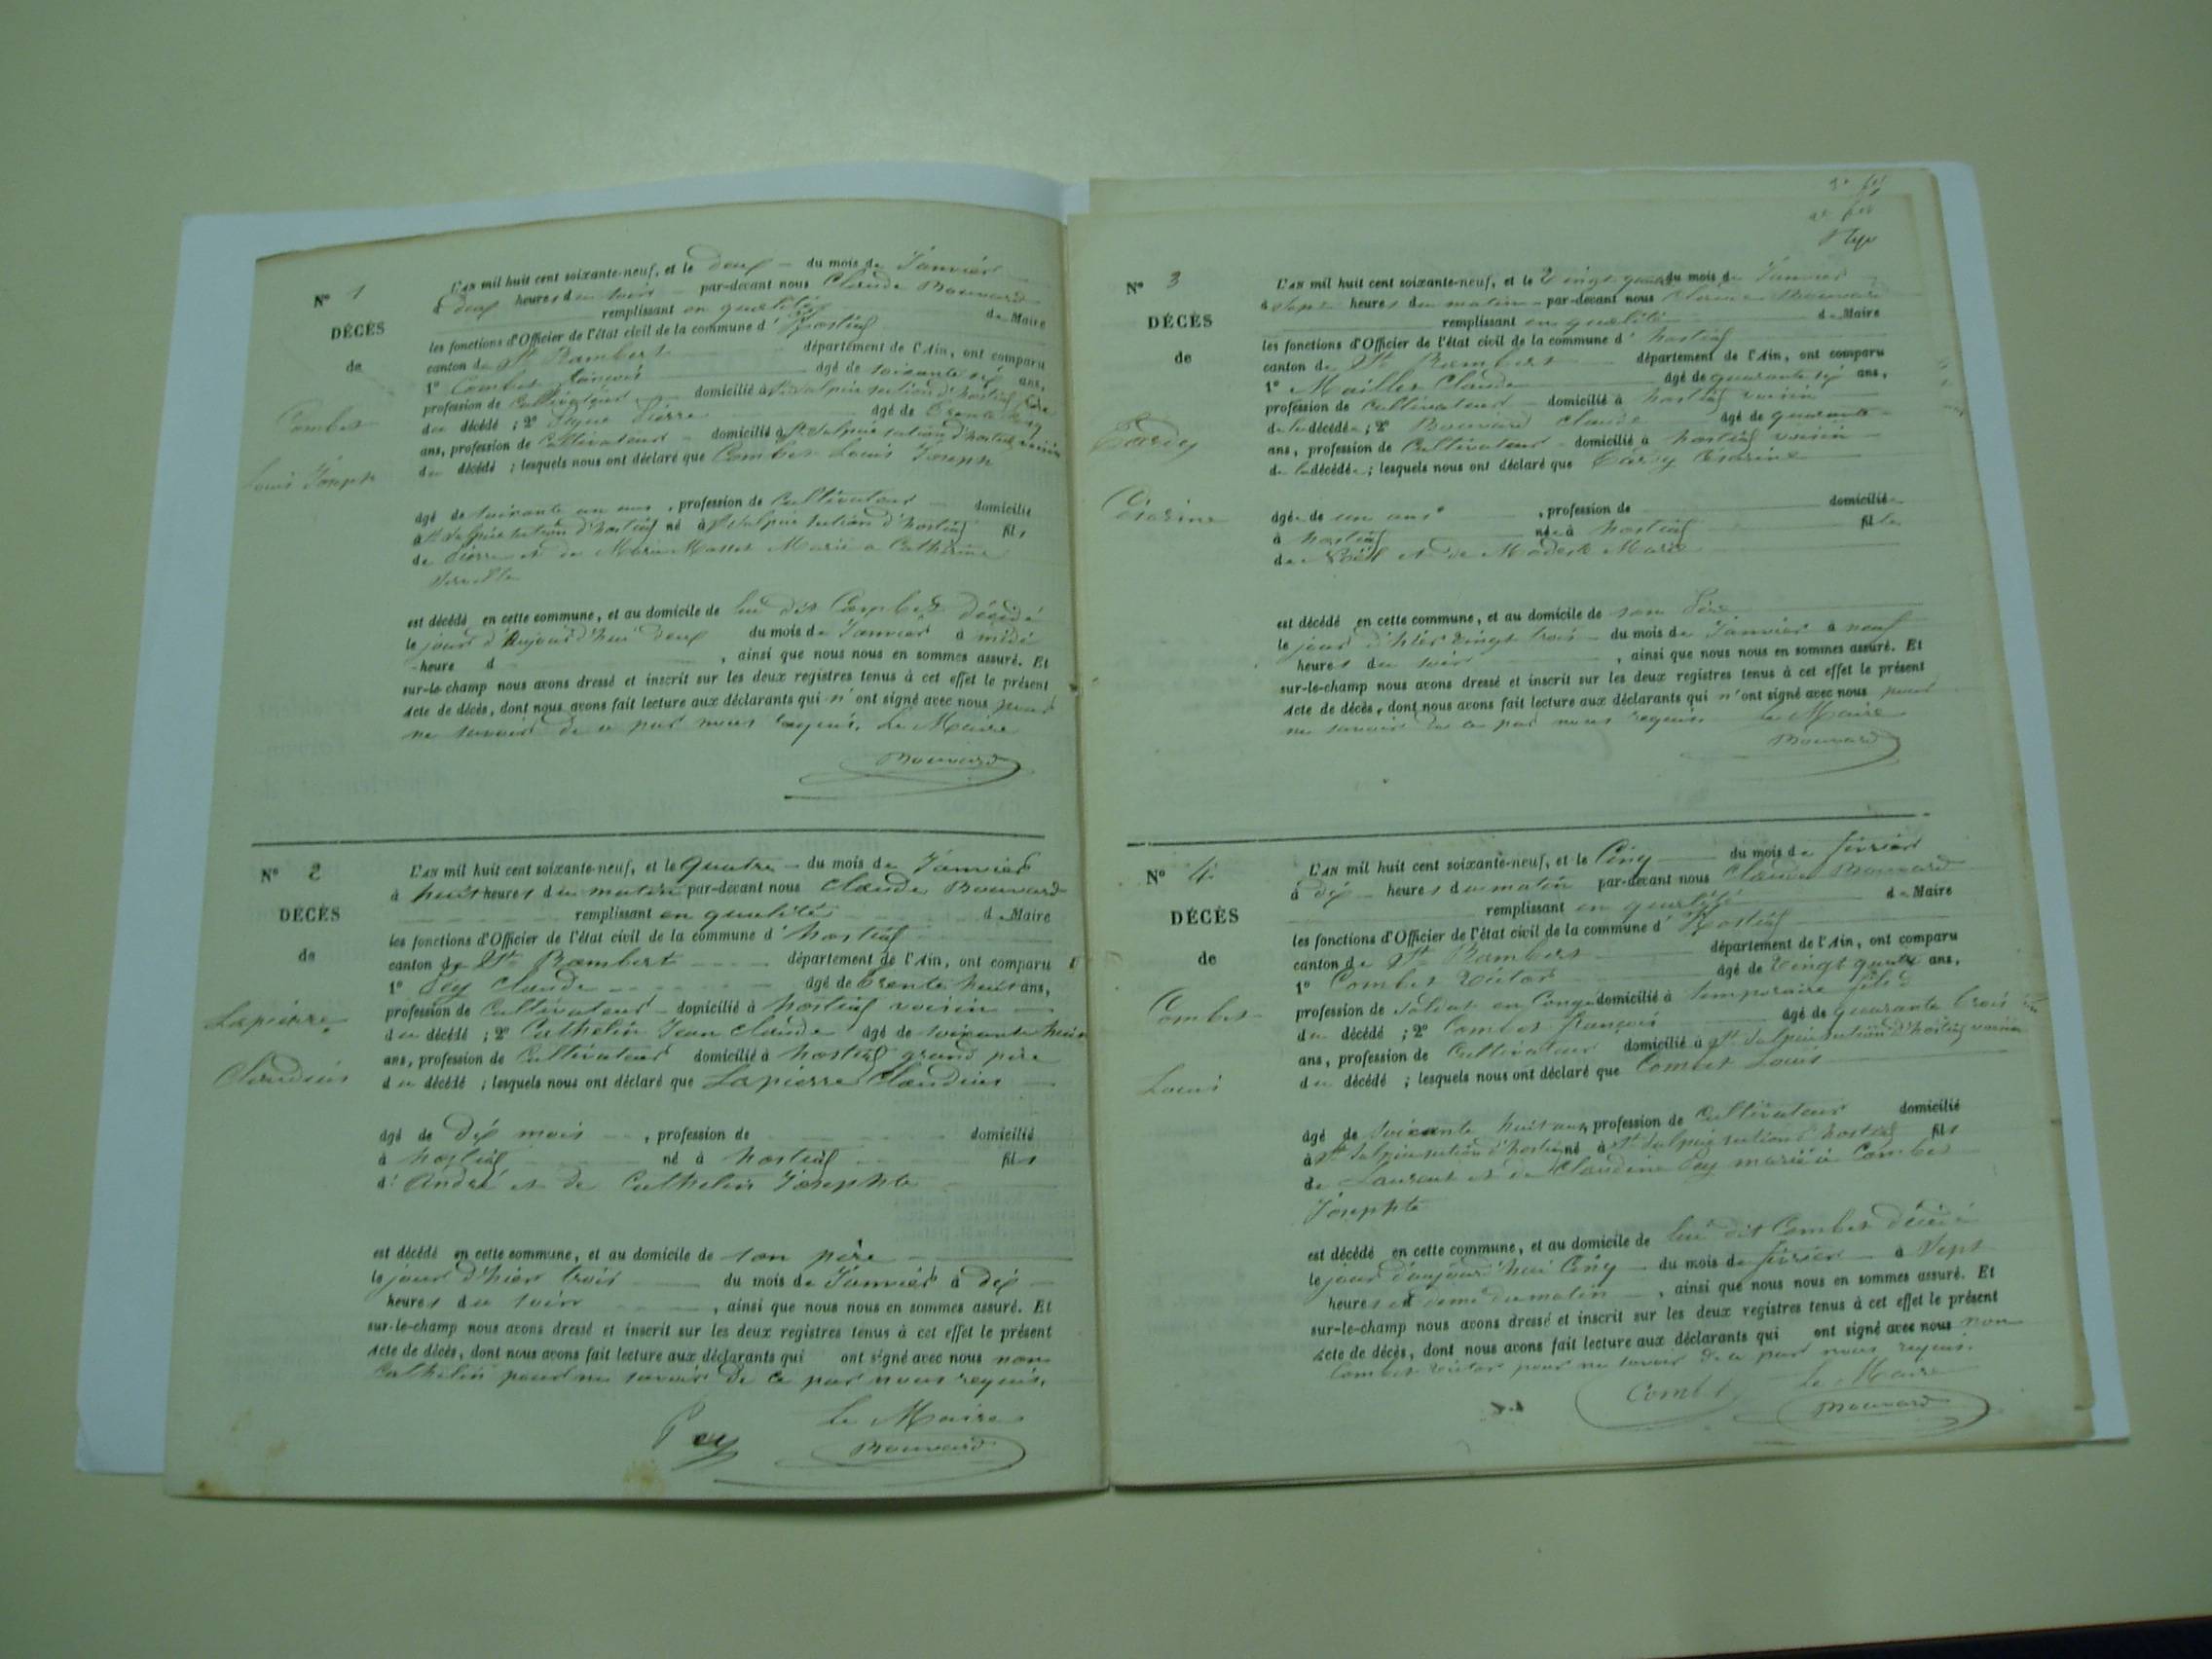 N° 1
DÉCÈS
de
Combet
Louis Joseph
L'AN mil huit cent soixante-neuf, et le deux du mois de Janvier
à deux heures du soir par-devant nous Claude Bouvard
remplissant en qualité de Maire
les fonctions d'Officier de l'état civil de la commune d'hostiaz
canton de St Rambert département de l'Ain, ont comparu
1° Combet françois âgé de soixante six ans,
profession de Cultivateur domicilié à St Sulpice section d'hostiaz
du décédé ; 2° Pierre âgé de trente
ans, profession de Cultivateur domicilié à St Sulpice section d'hostiaz voisin
du décédé ; lesquels nous ont déclaré que Combet Louis Joseph
âgé de soixante un ans, profession de Cultivateur domicilié
à St Sulpice section d'hostiaz né à St Sulpice section d'hostiaz fils
de Pierre et de Marie Masset Marié a Catherine
est décédé en cette commune, et au domicile de lui dit Combet décédé
le jour d'Aujourd'hui deux du mois de Janvier à midi
heure d , ainsi que nous nous en sommes assuré. Et
sur-le-champ nous avons dressé et inscrit sur les deux registres tenus à cet effet le présent
Acte de décès, dont nous avons fait lecture aux déclarants qui n'ont signé avec nous pour
ne savoir de ce par nous requis. Le Maire
Bouvard
N° 2
DÉCÈS
de
Lapierre
Claudius
L'AN mil huit cent soixante-neuf, et le quatre du mois de Janvier
à huit heures du matin par-devant nous Claude Bouvard
remplissant en qualité de Maire
les fonctions d'Officier de l'état civil de la commune d'hostiaz
canton de St Rambert département de l'Ain, ont comparu
1° Pey Claude âgé de trente huit ans,
profession de Cultivateur domicilié à hostiaz voisin
du décédé ; 2° Cathelin Jean Claude âgé de soixante huit
ans, profession de Cultivateur domicilié à hostiaz grand père
du décédé ; lesquels nous ont déclaré que Lapierre Claudius
âgé de dix mois , profession de domicilié
à hostiaz né à hostiaz fils
d'André et de Cathelin Josephte
est décédé en cette commune, et au domicile de son père
le jour d'hier trois du mois de Janvier à dix
heures du soir , ainsi que nous nous en sommes assuré. Et
sur-le-champ nous avons dressé et inscrit sur les deux registres tenus à cet effet le présent
Acte de décès, dont nous avons fait lecture aux déclarants qui ont signé avec nous non
Cathelin pour ne savoir de ce par nous requis.
Pey Le Maire
Bouvard
N° 3
DÉCÈS
de
L'AN mil huit cent soixante-neuf, et le Vingt quatre du mois de Janvier
à sept heures du matin par-devant nous Claude Bouvard
remplissant en qualité de Maire
les fonctions d'Officier de l'état civil de la commune d'hostiaz
canton de St Rambert département de l'Ain, ont comparu
1° Maillet Claude âgé de quarante six ans,
profession de Cultivateur domicilié à hostiaz voisin
de la décédée ; 2° Bouvard Claude âgé de quarante
ans, profession de Cultivateur domicilié à hostiaz voisin
de la décédée ; lesquels nous ont déclaré que
âgée de un ans , profession de domiciliée
à hostiaz née à hostiaz fille
de Noël et de Modeste Marie
est décédé en cette commune, et au domicile de son Père
le jour d'hier vingt trois du mois de Janvier à neuf
heures du soir , ainsi que nous nous en sommes assuré. Et
sur-le-champ nous avons dressé et inscrit sur les deux registres tenus à cet effet le présent
Acte de décès, dont nous avons fait lecture aux déclarants qui n'ont signé avec nous pour
ne savoir de ce par nous requis. Le Maire
Bouvard
N° 4
DÉCÈS
de
Combet
Louis
L'AN mil huit cent soixante-neuf, et le Cinq du mois de février
à dix heures du matin par-devant nous Claude Bouvard
remplissant en qualité de Maire
les fonctions d'Officier de l'état civil de la commune d'hostiaz
canton de St Rambert département de l'Ain, ont comparu
1° Combet Victor âgé de Vingt quatre ans,
profession de Soldat en Congé domicilié à temporaire fils
du décédé ; 2° Combet françois âgé de quarante trois
ans, profession de Cultivateur domicilié à St Sulpice section d'hostiaz voisin
du décédé ; lesquels nous ont déclaré que Combet Louis
âgé de soixante huit ans, profession de Cultivateur domicilié
à St Sulpice section d'hostiaz né à St Sulpice section d'hostiaz fils
de Laurent et de Claudine Pey marié à Combet
Josephte
est décédé en cette commune, et au domicile de lui dit Combet décédé
le jour d'aujourd'hui Cinq du mois de février à Sept
heures et demi du matin , ainsi que nous nous en sommes assuré. Et
sur-le-champ nous avons dressé et inscrit sur les deux registres tenus à cet effet le présent
Acte de décès, dont nous avons fait lecture aux déclarants qui ont signé avec nous non
Combet Victor pour ne savoir de ce par nous requis.
Combet Le Maire
Bouvard